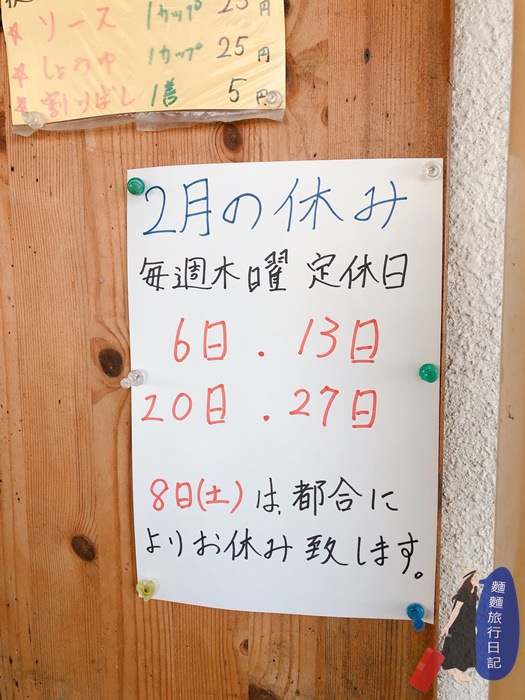 ☆ ソース 1カップ 25円
☆ しょうゆ 1カップ 25円
☆ 割りばし 1善 5円
2月の休み
毎週木曜 定休日
6日 . 13日
20日 . 27日
8日(土)は、都合に
よりお休み致します。
麵麵旅行日記